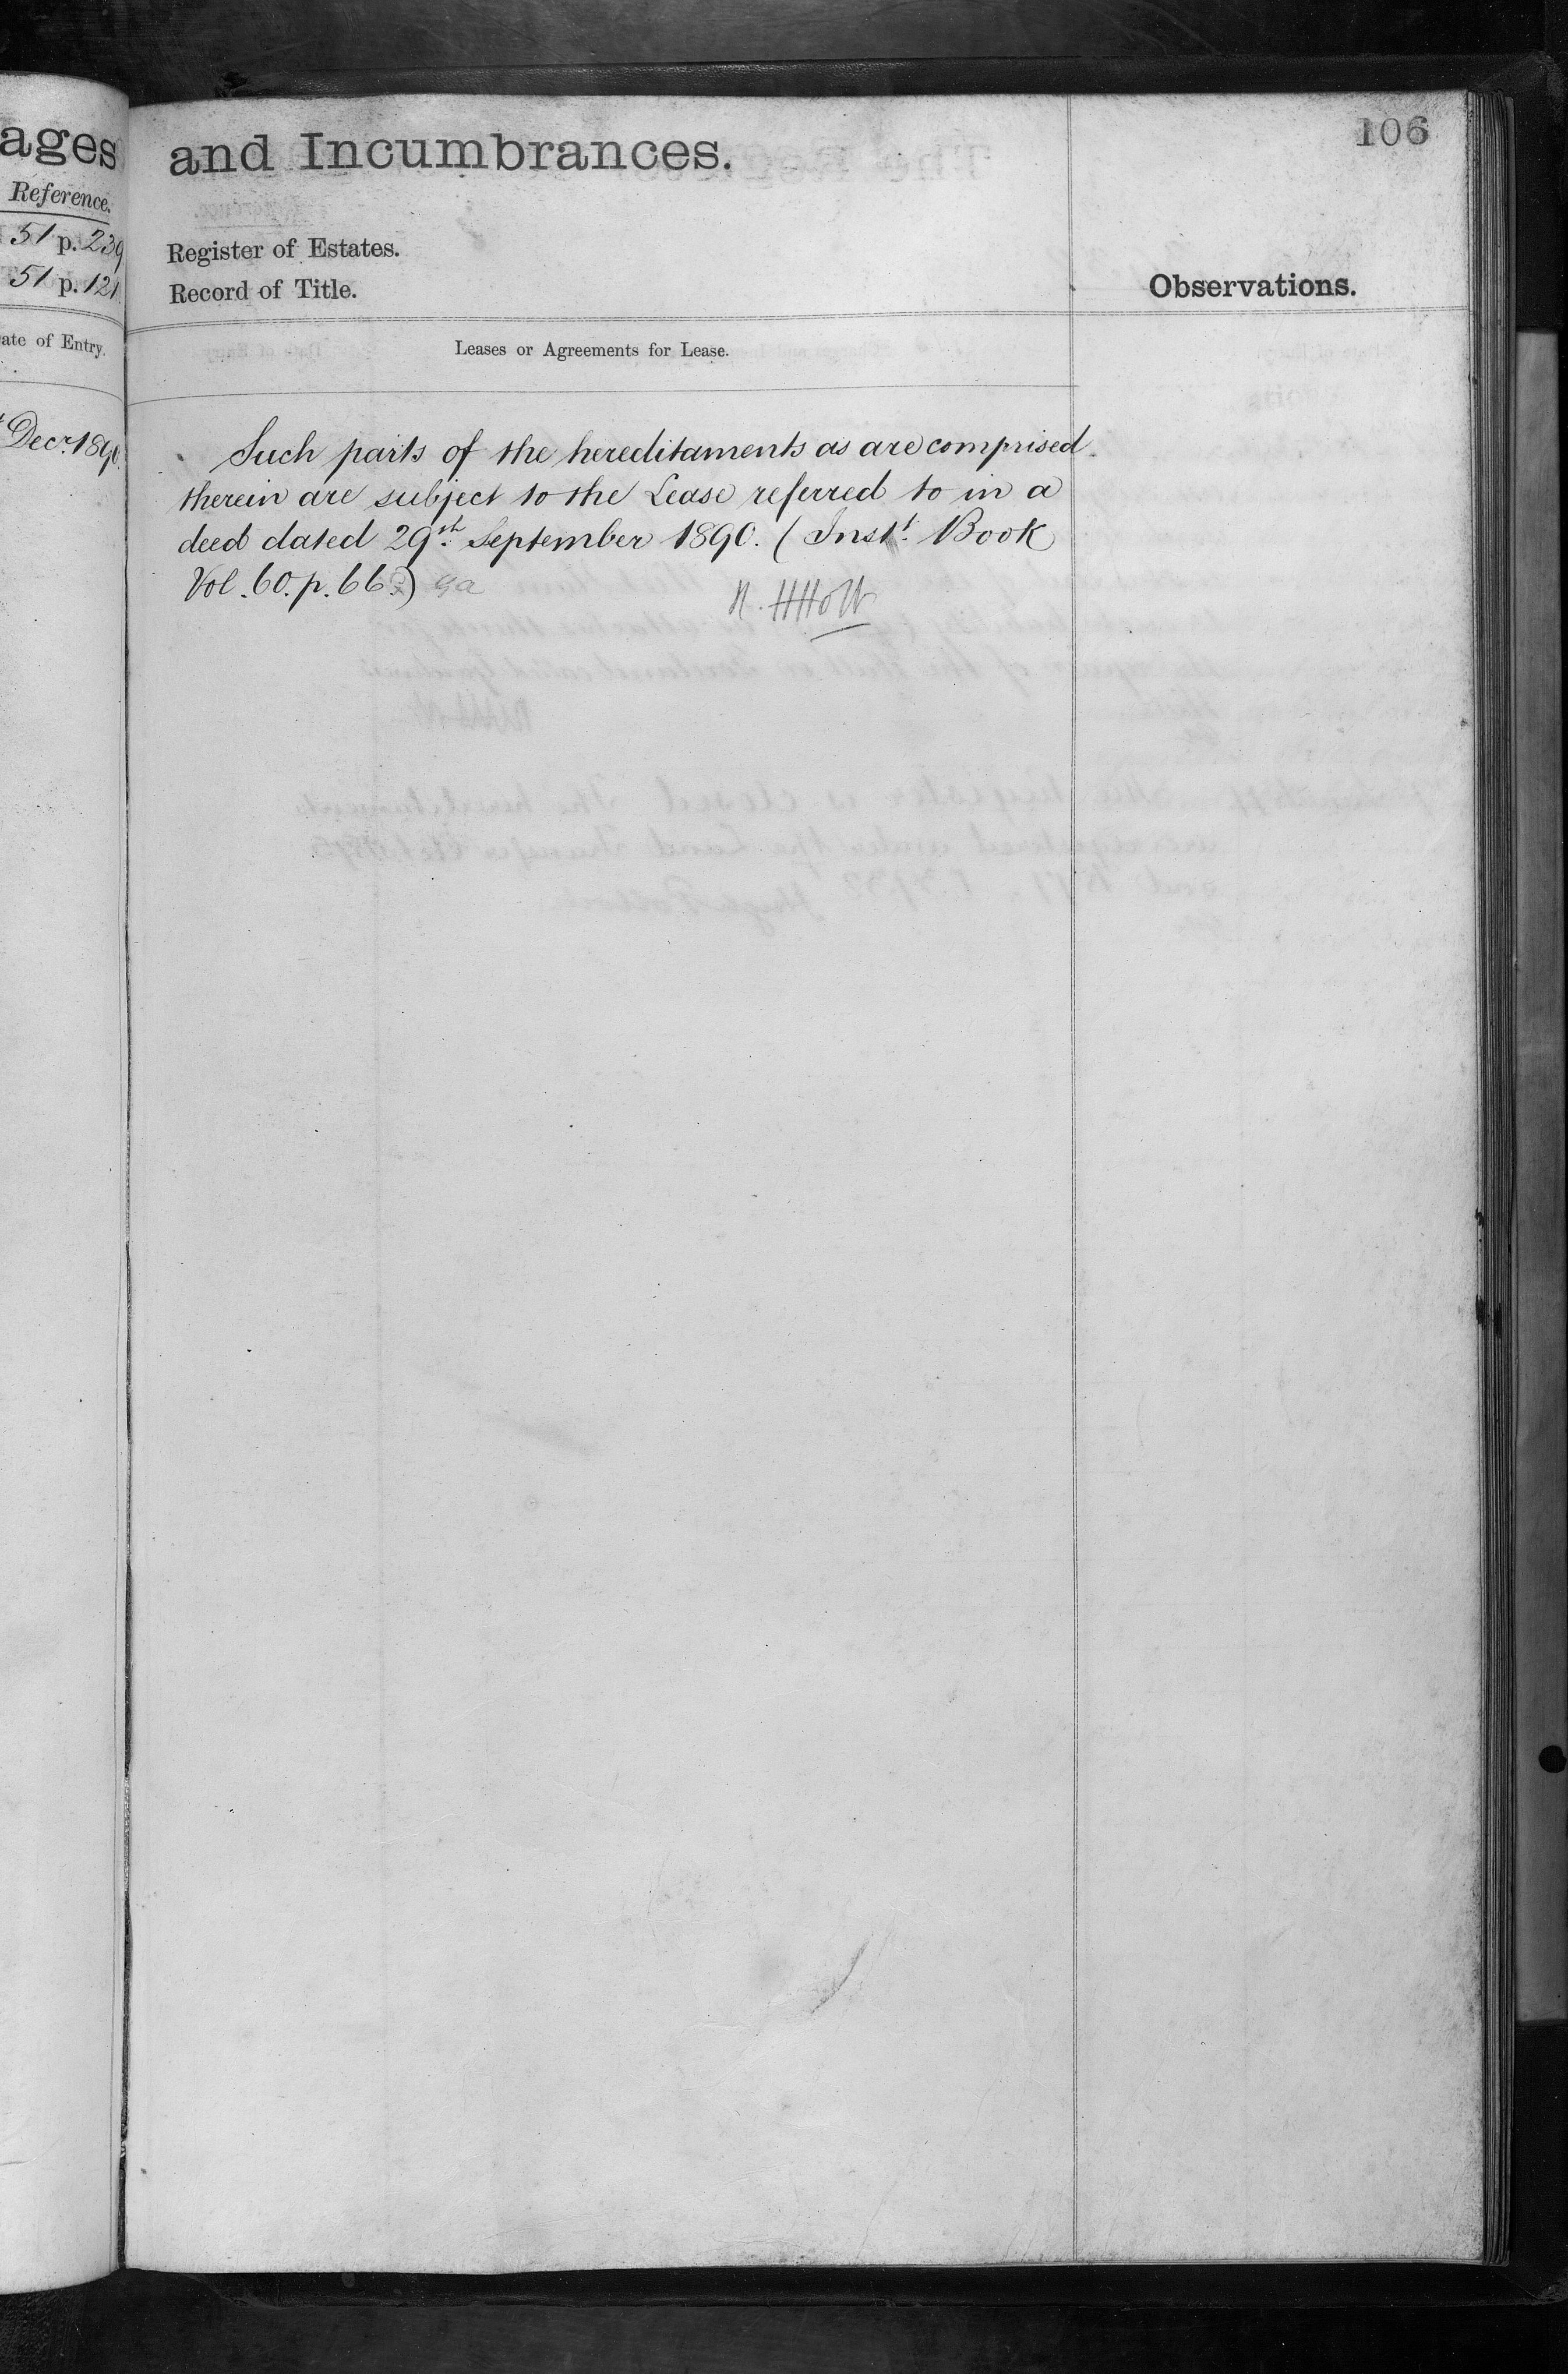 ages
Reference.
51 p. 239
51 p. 121
ate of Entry.
Decr. 1890
106
and Incumbrances.
Register of Estates.
Record of Title.
Observations.
Leases or Agreements for Lease.
Such parts of the hereditaments as are comprised
therein are subject to the Lease referred to in a
deed dated 29th. September 1890. (Inst. Book
Vol. 60. p. 66.)